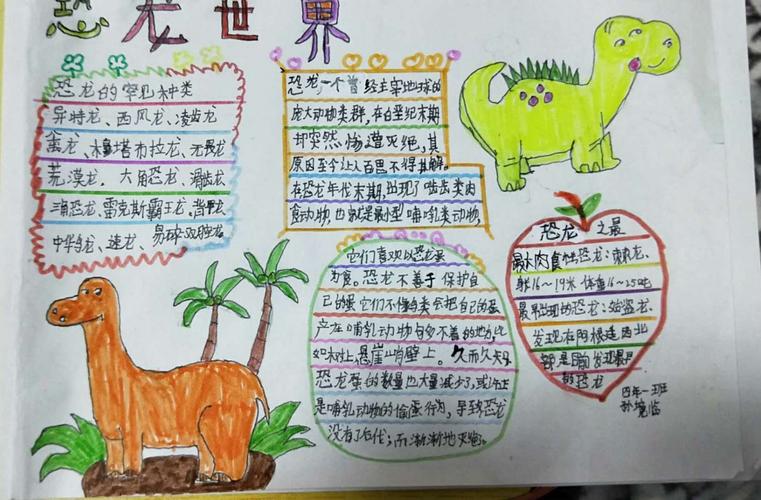 恐龙世界
恐龙的罕见种类
异特龙、西风龙、凌齿龙
蛮龙、木塔布拉龙、无畏龙
荒漠龙、六角恐龙、滑齿龙
三角恐龙、雷克斯霸王龙、当甲龙
中华鸟龙、速龙、易碎双腔龙
恐龙,一个曾经主宰地球的
庞大动物类群,在白垩纪末期
却突然惨遭灭绝,其
原因至今让人百思不得其解。
在恐龙年代末期,出现了啮齿类肉
食动物,也就是最小型哺乳类动物,
它们喜欢以恐龙蛋
为食。恐龙不善于保护自
己的蛋它们不懂鸟类会把自己的蛋
产在哺乳动物够不着的地方,比
如树上,悬崖峭壁上。久而久之
恐龙蛋的数量也大量减少了,或许正
是哺乳动物的偷蛋行为,导致恐龙
没有了后代;而渐渐地灭绝。
恐龙之最
最大肉食性恐龙:棘龙、
身16~19米体重16~25吨
最早出现的恐龙:始盗龙、
发现在阿根廷西北
部是目前发现最早
的恐龙
四年一班
孙境临